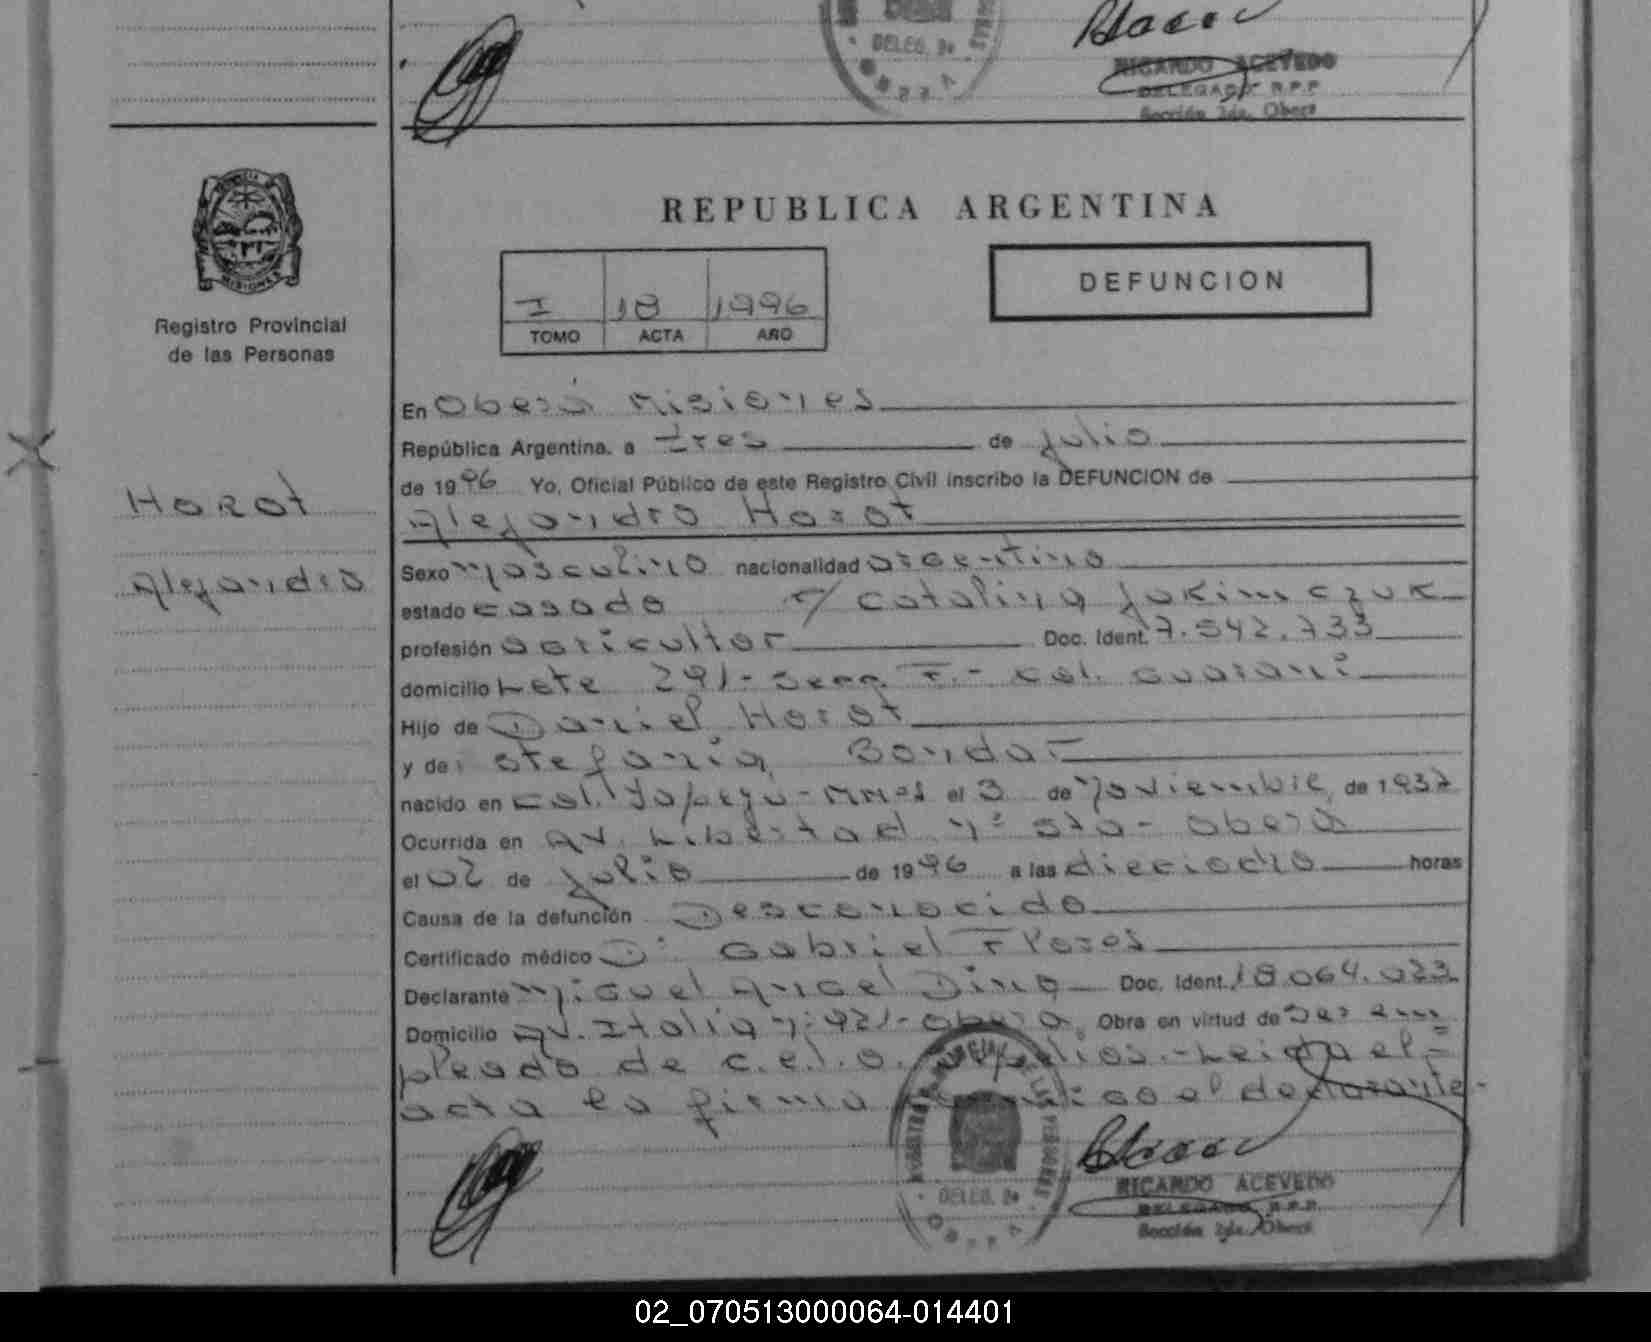 DELEG. 2a
RICARDO ACEVEDO
DELEGADO R.P.P.
Sección 2da. Oberá
PROVINCIA DE
MISIONES
Registro Provincial
de las Personas
Horot
Alejandro
REPUBLICA ARGENTINA
I 18 1996
TOMO ACTA AÑO
DEFUNCION
En Oberá Misiones
República Argentina, a tres de julio
de 1996 Yo, Oficial Público de este Registro Civil inscribo la DEFUNCION de
Alejandro Horot
Sexo Masculino nacionalidad argentino
estado casado c/ Catalina Jakimczuk
profesión agricultor Doc. Ident. 7.542.733
domicilio Lote 291- Secc. F.- Col. Guaraní
Hijo de Daniel Horot
y de Stefania Bondar
nacido en Col. Yapeyu-Mnes el 3 de Noviembre de 1937
Ocurrida en Av. Libertad nº s/n- Oberá
el 02 de julio de 1996 a las dieciocho horas
Causa de la defunción Desconocido
Certificado médico Dr Gabriel Flores
Declarante Miguel Angel Dino Doc. Ident. 18.064.023
Domicilio Av. Italia nº 421-Oberá Obra en virtud de ser em
pleado de C.E.L.O. Sepelios.-Leida el
acta la firma conmigo el declarante-
DELEG. 2a
RICARDO ACEVEDO
DELEGADO R.P.P.
Sección 2da. Oberá
02_070513000064-014401